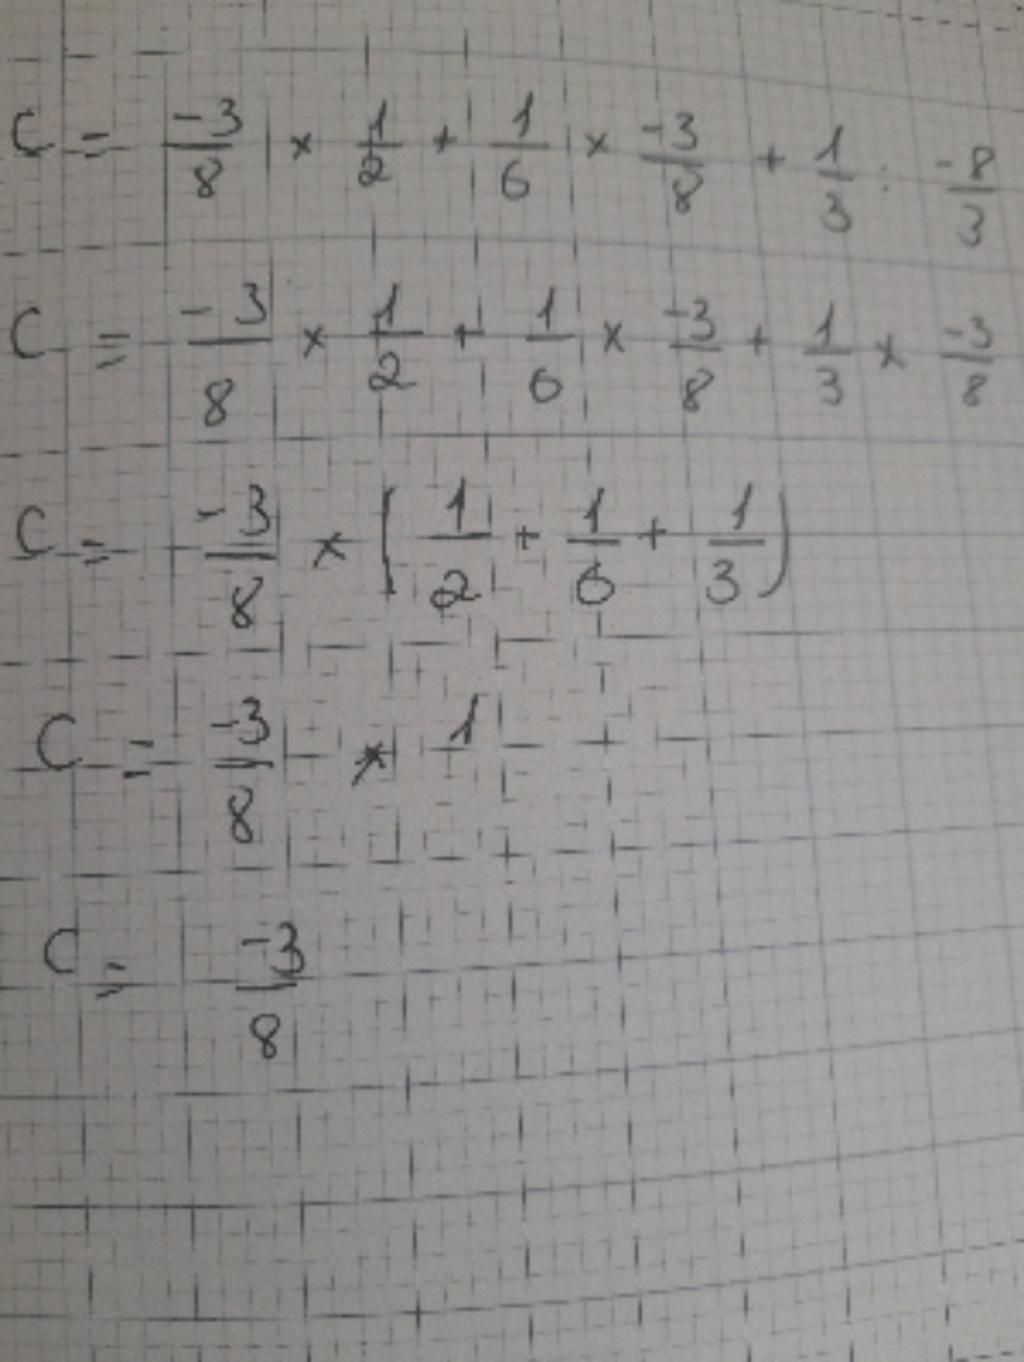 C = -3/8 × 1/2 + 1/6 × -3/8 + 1/3 : -8/3
C = -3/8 × 1/2 + 1/6 × -3/8 + 1/3 × -3/8
C = -3/8 × (1/2 + 1/6 + 1/3)
C = -3/8 × 1
C = -3/8